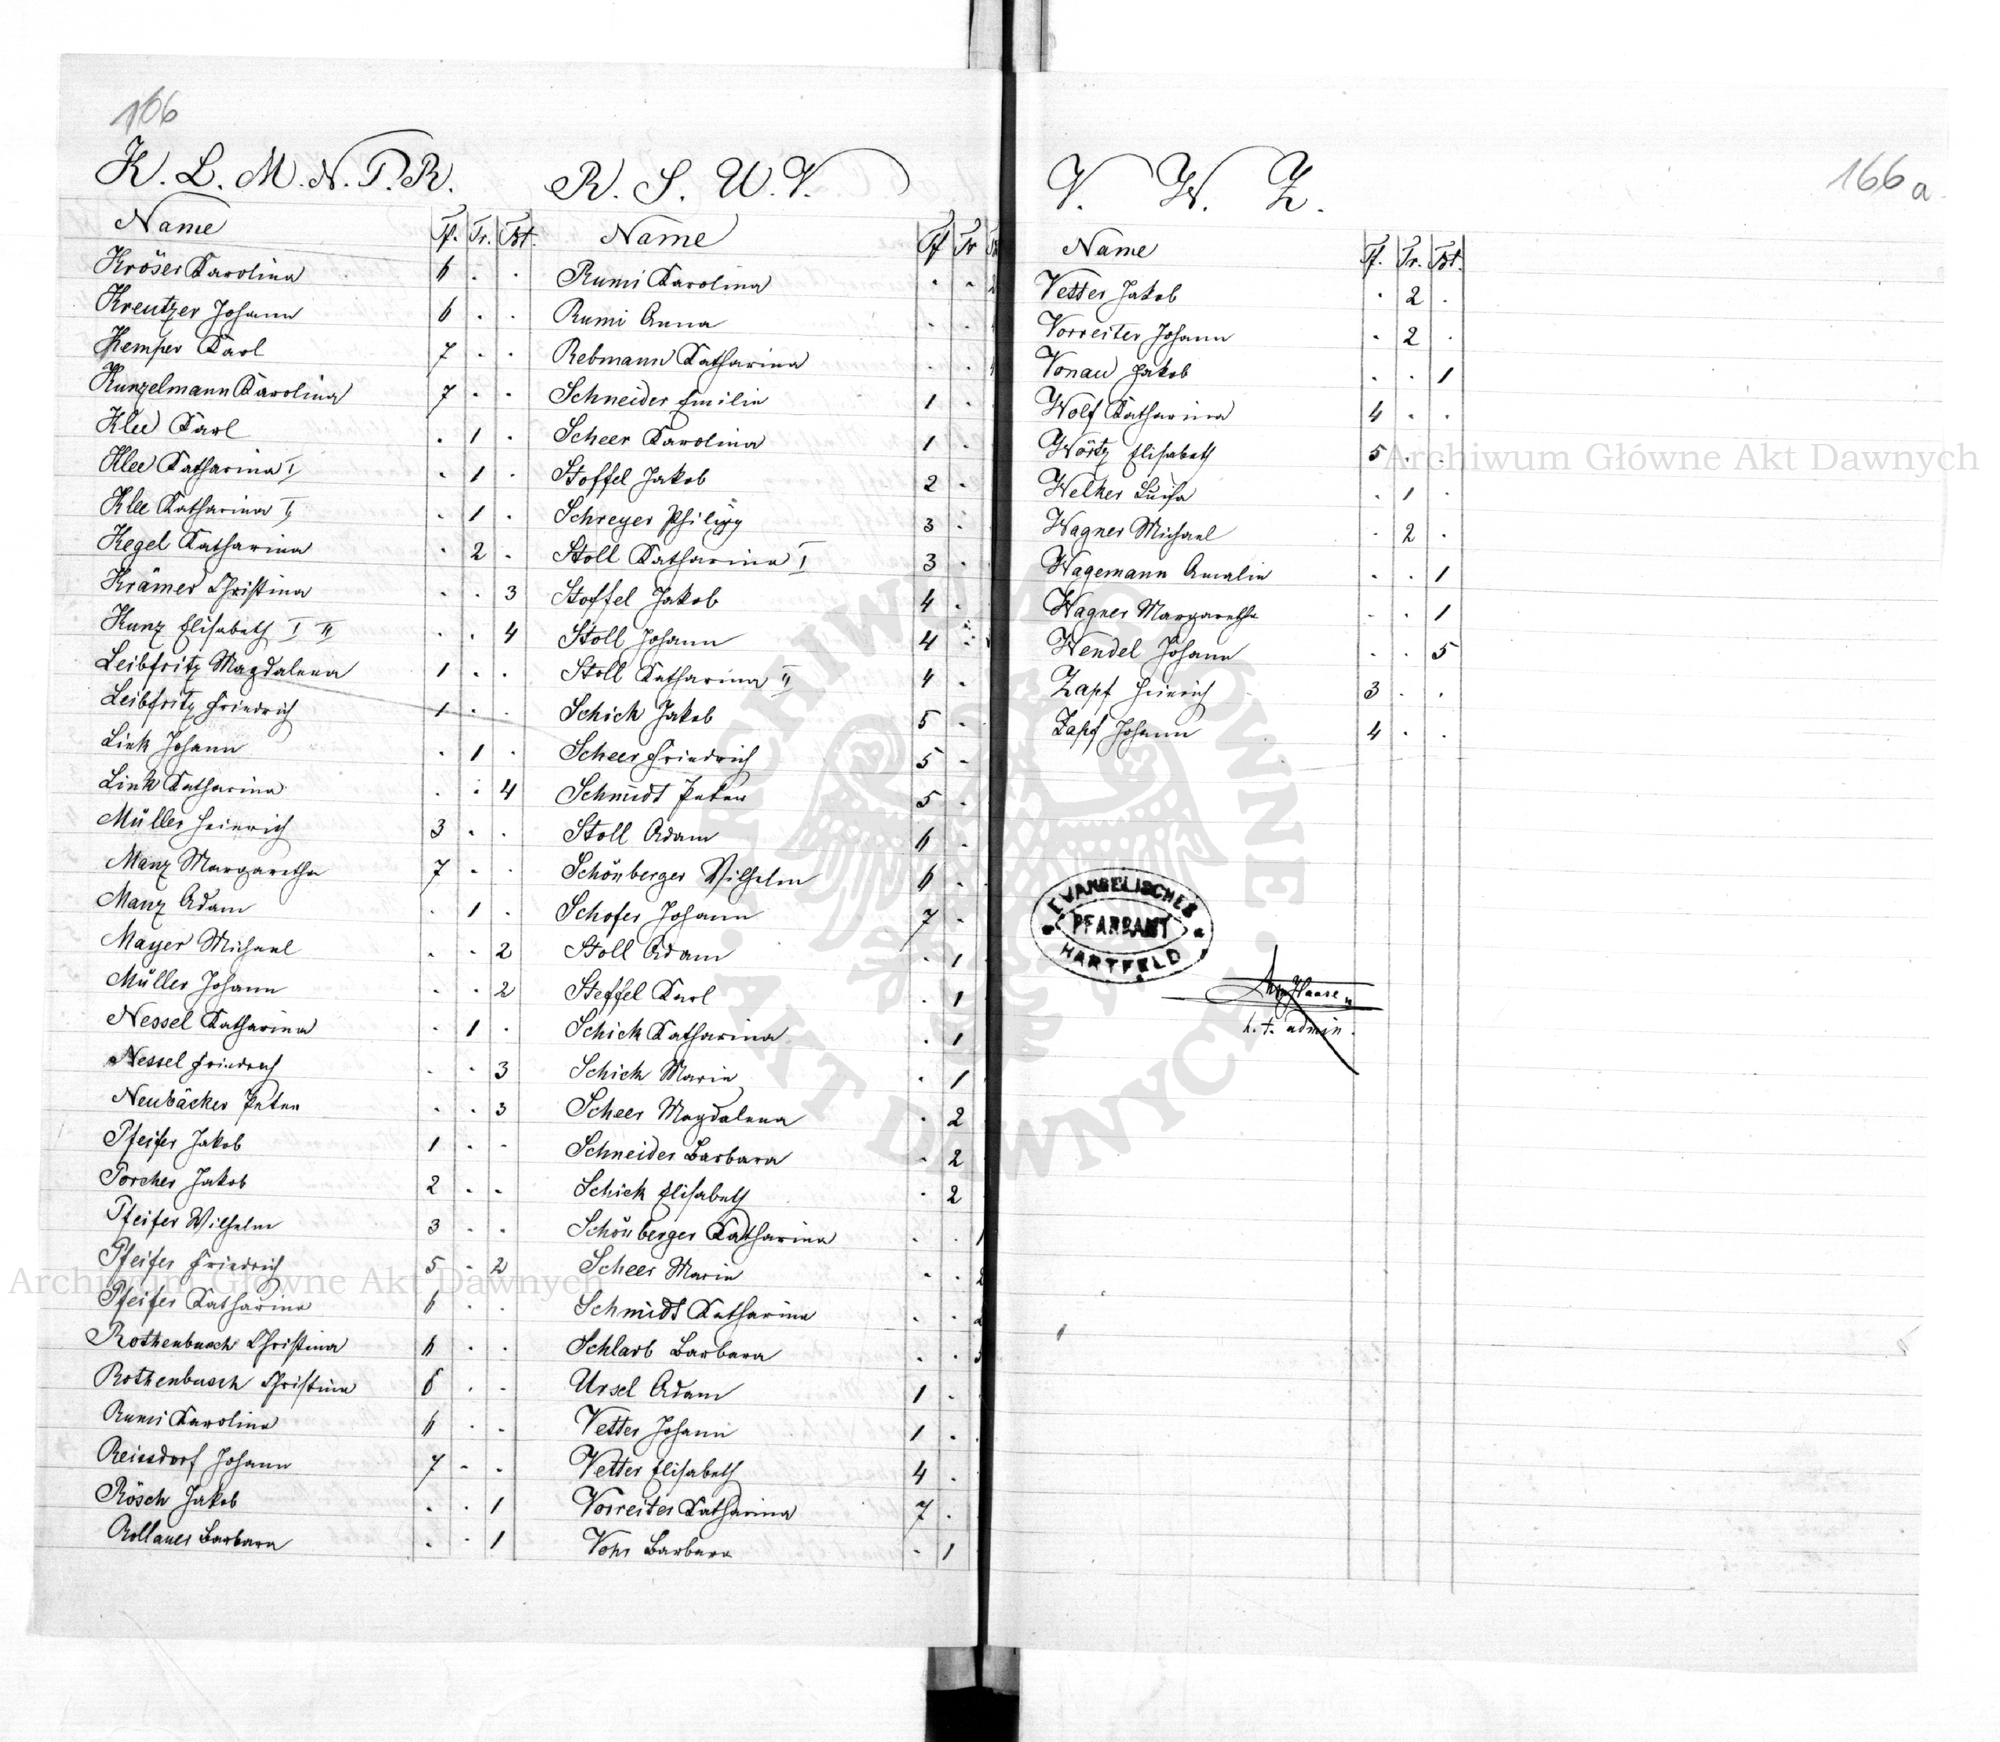 166
K. L. M. N. P. R.
Name Tf. Tr. Bt.
Kröser Karolina 6 . .
Kreutzer Johann 6 . .
Kemper Karl 7 . .
Kunzelmann Karolina 7 . .
Klee Karl . 1 .
Klee Katharina I . 1 .
Klee Katharina II . 1 .
Kegel Katharina . 2 .
Krämer Christina . . 3
Kunz Elisabeth I II . . 4
Leibfritz Magdalena 1 . .
Leibfritz Friedrich 1 . .
Link Johann . 1 .
Link Katharina . . 4
Müller Heinrich 3 . .
Manz Margaretha 7 . .
Manz Adam . 1 .
Mayer Michael . . 2
Müller Johann . . 2
Nessel Katharina . 1 .
Nessel Friedrich . . 3
Neubäcker Peter . . 3
Pfeifer Jakob 1 . .
Porcher Jakob 2 . .
Pfeifer Wilhelm 3 . .
Pfeifer Friedrich 5 . 2
Pfeifer Katharina 6 . .
Rothenbusch Christina 6 . .
Rothenbusch Christina 6 . .
Rumi Karolina 6 . .
Reissdorf Johann 7 . .
Rösch Jakob . . 1
Rollauer Barbara . . 1
R. S. U. V.
Name Tf Tr
Rumi Karolina . . 2
Rumi Anna . .
Rebmann Katharina . .
Schneider Emilie 1 .
Scheer Karolina 1 .
Stoffel Jakob 2 .
Schreyer Philipp 3 .
Stoll Katharina I 3 .
Stoffel Jakob 4 .
Stoll Johann 4 .
Stoll Katharina II 4 .
Schick Jakob 5 .
Scheer Friedrich 5 .
Schmidt Peter 5 .
Stoll Adam 6 .
Schönberger Wilhelm 6 .
Schofer Johann 7 .
Stoll Adam . 1
Steffel Karl . 1
Schick Katharina . 1
Schick Marie . 1
Scheer Magdalena . 2
Schneider Barbara . 2
Schick Elisabeth . 2
Schönberger Katharina . . 1
Scheer Marie . . 2
Schmidt Katharina . . 2
Schlarb Barbara . . 3
Ursel Adam 1 .
Vetter Johann 1 .
Vetter Elisabeth 4 .
Vorreiter Katharina 7 .
Vohr Barbara . 1
166a
V. W. Z.
Name Tf. Tr. Bt.
Vetter Jakob . 2 .
Vorreiter Johann . 2 .
Vonau Jakob . . 1
Wolf Katharina 4 . .
Wörtz Elisabeth 5 . .
Welker Luisa . 1 .
Wagner Michael . 2 .
Wagemann Amalie . . 1
Wagner Margaretha . . 1
Wendel Johann . . 5
Zapf Heinrich 3 . .
Zapf Johann 4 . .
EVANGELISCHES
PFARRAMT
HARTFELD
Haase
h. t. admin.
Archiwum Główne Akt Dawnych
Archiwum Główne Akt Dawnych
ARCHIWUM GŁÓWNE
AKT DAWNYCH